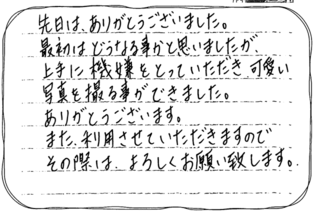 先日は、ありがとうございました。
最初はどうなる事かと思いましたが、
上手に機嫌をとっていただき、可愛い
写真を撮る事ができました。
ありがとうございます。
また、利用させていただきますので
その際は、よろしくお願い致します。